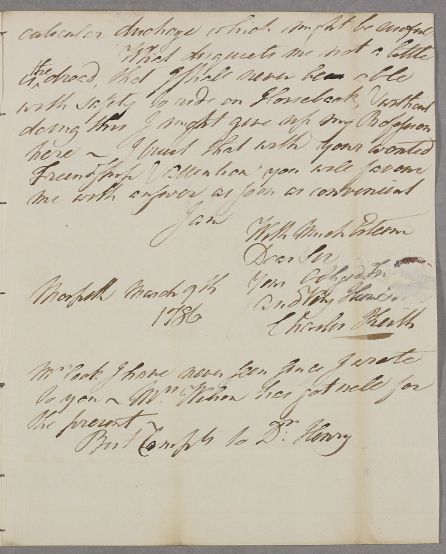 cuticular discharge which might be useful
What disquiets me not a little
is the dread, that I shall never be able
with safety to ride on Horseback, & without
doing this I might give up my Profession
here ~ I trust that with your wonted
Friendship & attention, you will favour
me with answer as soon as convenient
I am
With Much Esteem
Dear Sir
Your Obliged
and Very Humble
Charles Keith
Morpeth March 9th
1786
Mr Cook I have never seen since I wrote
to you ~ Mrs Wilson has got well for
the present
Best Compts to Dr. Henry